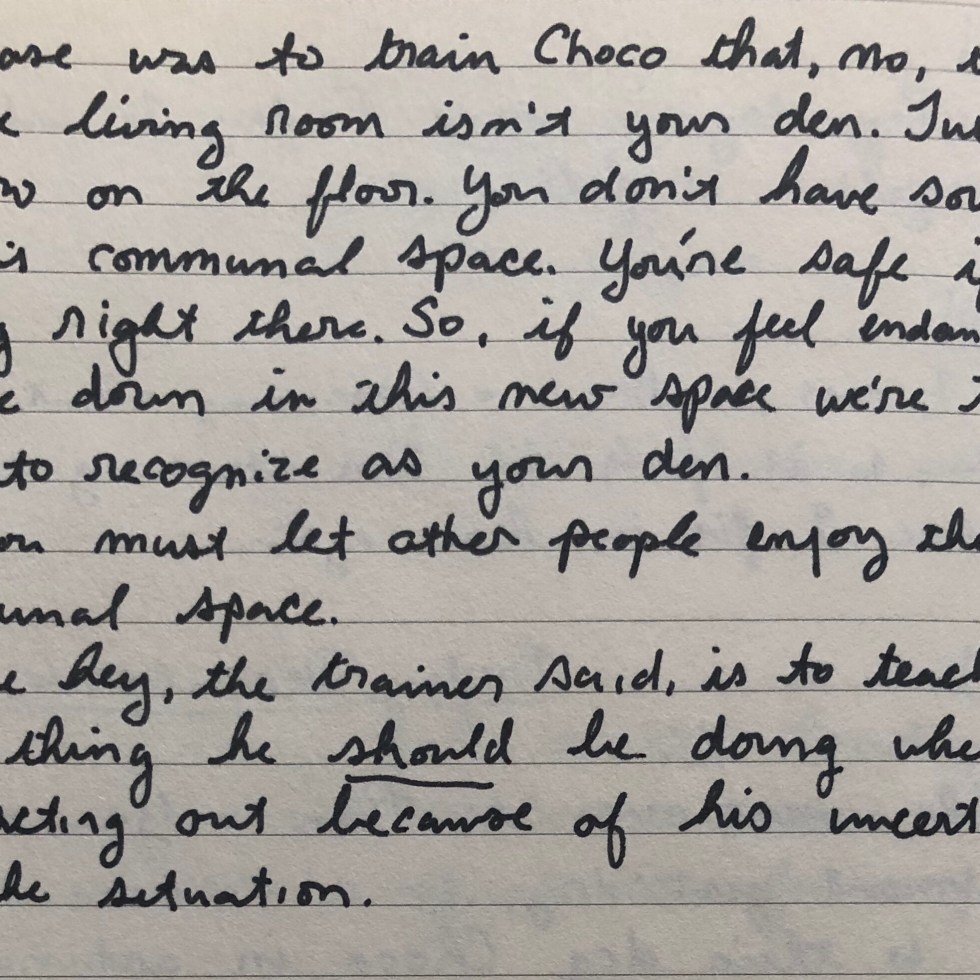 ase was to train Choco that, no, t
living room isn't your den. Ju
w on the floor. You don't have sou
is communal space. You're safe i
g right there. So, if you feel endan
e down in this new space we're
to recognize as your den.
ou must let other people enjoy the
unal space.
e key, the trainer said, is to teach
thing he should be doing whe
acting out because of his uncert
he situation.